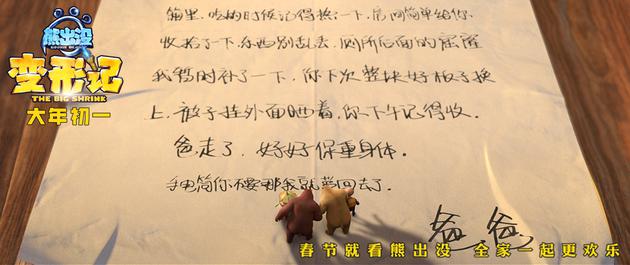 熊出没
BOONIE BEARS
变形记
THE BIG SHRINK
大年初一
箱里，吃的时候记得换一下，房间简单给你
收拾了一下，东西别乱丢，厕所后面的窟窿
我临时补了一下，你下次整块好板子换
上，被子挂外面晒着，你下午记得收。
爸走了，好好保重身体。
手电筒你不要那我就带回去了。
爸爸
春节就看熊出没 全家一起更欢乐